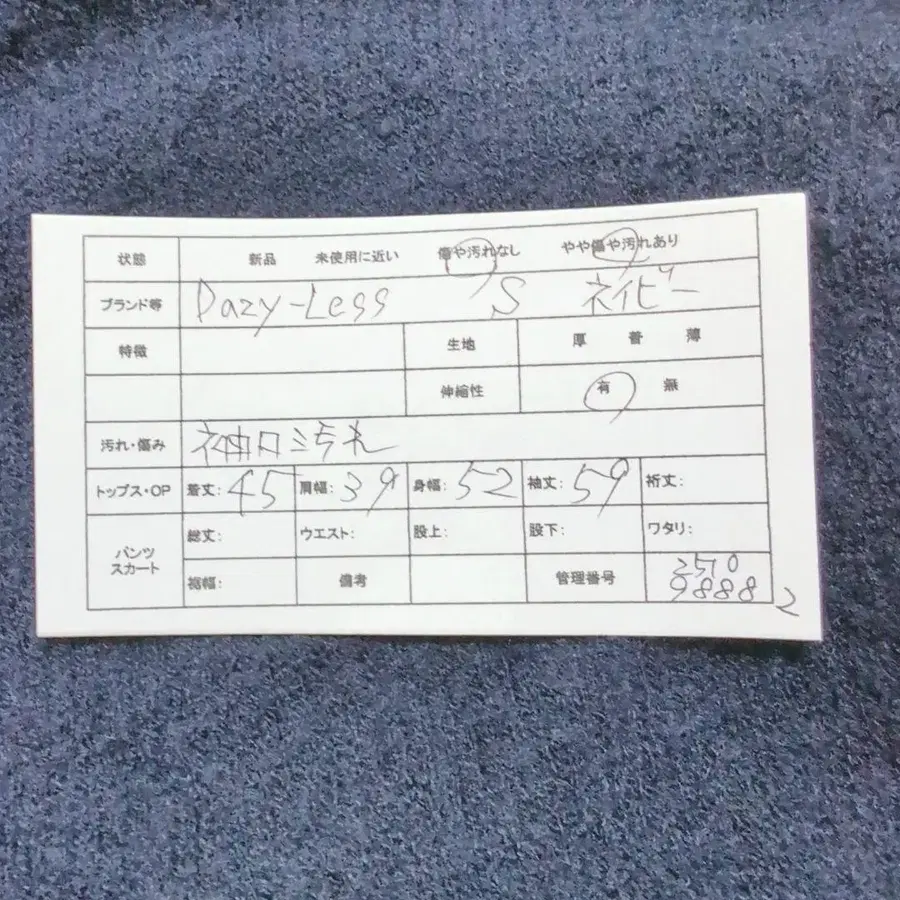 状態 新品 未使用に近い 傷や汚れなし やや傷や汚れあり
ブランド等 Dazy-Less S ネイビー
特徴 生地 厚 普 薄
伸縮性 有 無
汚れ・傷み 袖口汚れ
トップス・OP 着丈: 45 肩幅: 39 身幅: 52 袖丈: 59 裄丈:
パンツ スカート 総丈: ウエスト: 股上: 股下: ワタリ:
裾幅: 備考 管理番号 2510
98882